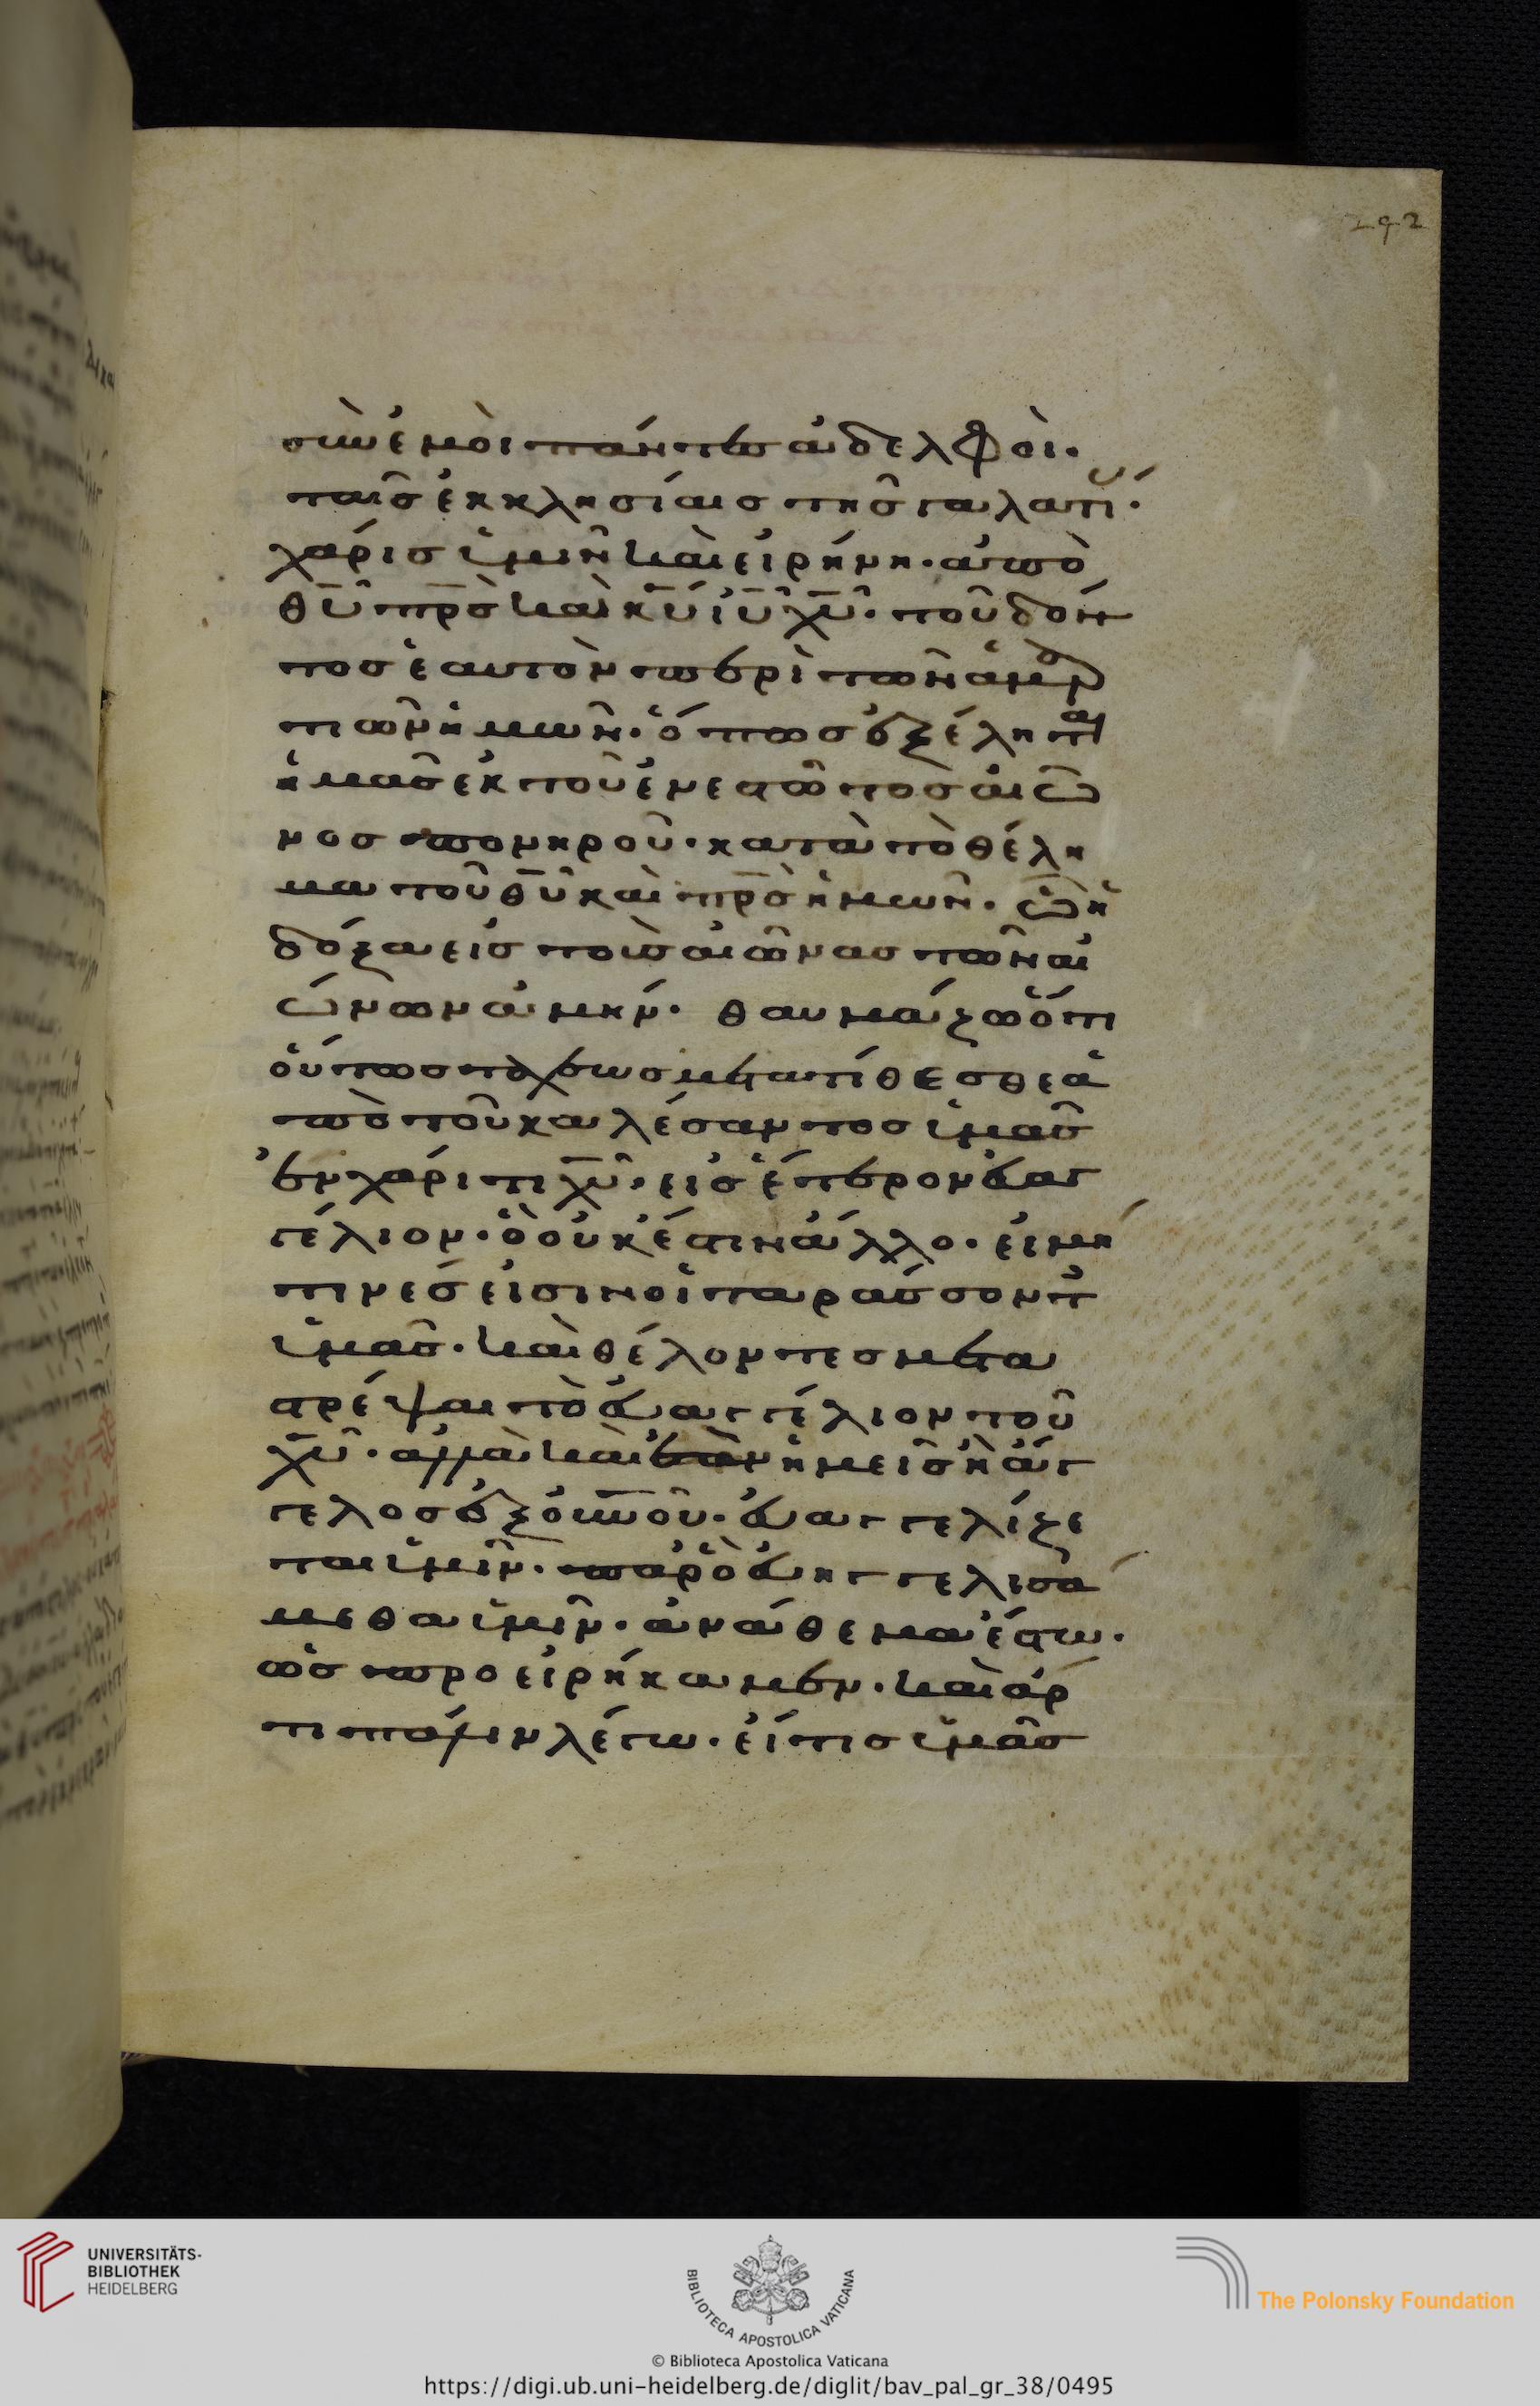 292
σὺν ἐμοὶ πάντες ἀδελφοὶ.
ταῖς ἐκκλησίαις τῆς γαλατί.
χάρις ὑμῖν καὶ εἰρήνη. ἀπὸ
θῦ πρς καὶ κυ ιυ χυ. τοῦ δόν
τος ἑαυτὸν περὶ τῶν ἁμαρ
τιῶν ἡμῶν. ὅπως ἐξέληται
ἡμᾶς ἐκ τοῦ ἐνεστῶτος αἰῶ
νος πονηροῦ. κατὰ τὸ θέλη
μα τοῦ θυ καὶ πρς ἡμῶν. ᾧ ἡ
δόξα εἰς τοὺς αἰῶνας τῶν αἰ
ώνων ἀμήν. θαυμάζω ὅτι
οὕτως ταχέως μετατίθεσθε ἀ
πὸ τοῦ καλέσαντος ὑμᾶς
ἐν χάριτι χυ. εἰς ἕτερον εὐαγ
γέλιον. ὃ οὐκ ἔστιν ἄλλο. εἰ μή
τινές εἰσιν οἱ ταράσσοντες
ὑμᾶς. καὶ θέλοντες μετα
στρέψαι τὸ εὐαγγέλιον τοῦ
χυ. ἀλλὰ καὶ ἐὰν ἡμεῖς ἢ ἄγ
γελος ἐξ οὐνοῦ. εὐαγγελίζε
ται ὑμῖν. παρ' ὃ εὐηγγελισά
μεθα ὑμῖν. ἀνάθεμα ἔστω.
ὡς προειρήκαμεν. καὶ ἄρ
τι πάλιν λέγω. εἴ τις ὑμᾶς
UNIVERSITÄTS-
BIBLIOTHEK
HEIDELBERG
BIBLIOTECA APOSTOLICA VATICANA
© Biblioteca Apostolica Vaticana
The Polonsky Foundation
https://digi.ub.uni-heidelberg.de/diglit/bav_pal_gr_38/0495